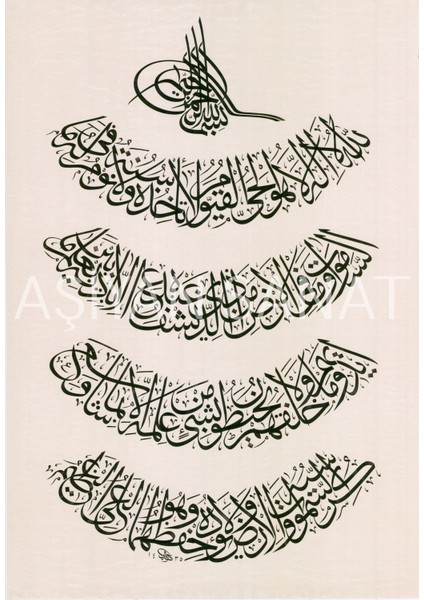 بسم الله الرحمن الرحيم
الله لا اله الا هو الحي القيوم لا تأخذه سنة ولا نوم له ما في
السموات وما في الارض من ذا الذي يشفع عنده الا باذنه يعلم ما بين
ايديهم وما خلفهم ولا يحيطون بشيء من علمه الا بما شاء وسع
كرسيه السموات والارض ولا يؤده حفظهما وهو العلي العظيم
AŞHAR SANAT